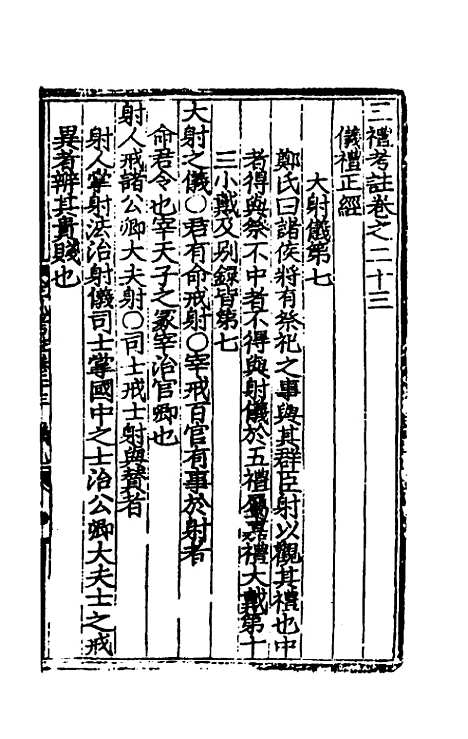 三禮考註卷之二十三
儀禮正經
大射儀第七
鄭氏曰諸侯將有祭祀之事與其群臣射以觀其禮也中
者得與祭不中者不得與射儀於五禮屬嘉禮大戴第十
三小戴及別錄皆第七
大射之儀○君有命戒射○宰戒百官有事於射者
命君令也宰天子之冢宰治官卿也
射人戒諸公卿大夫射○司士戒士射與贊者
射人掌射法治射儀司士掌國中之士治公卿大夫士之戒
異者辨其貴賤也